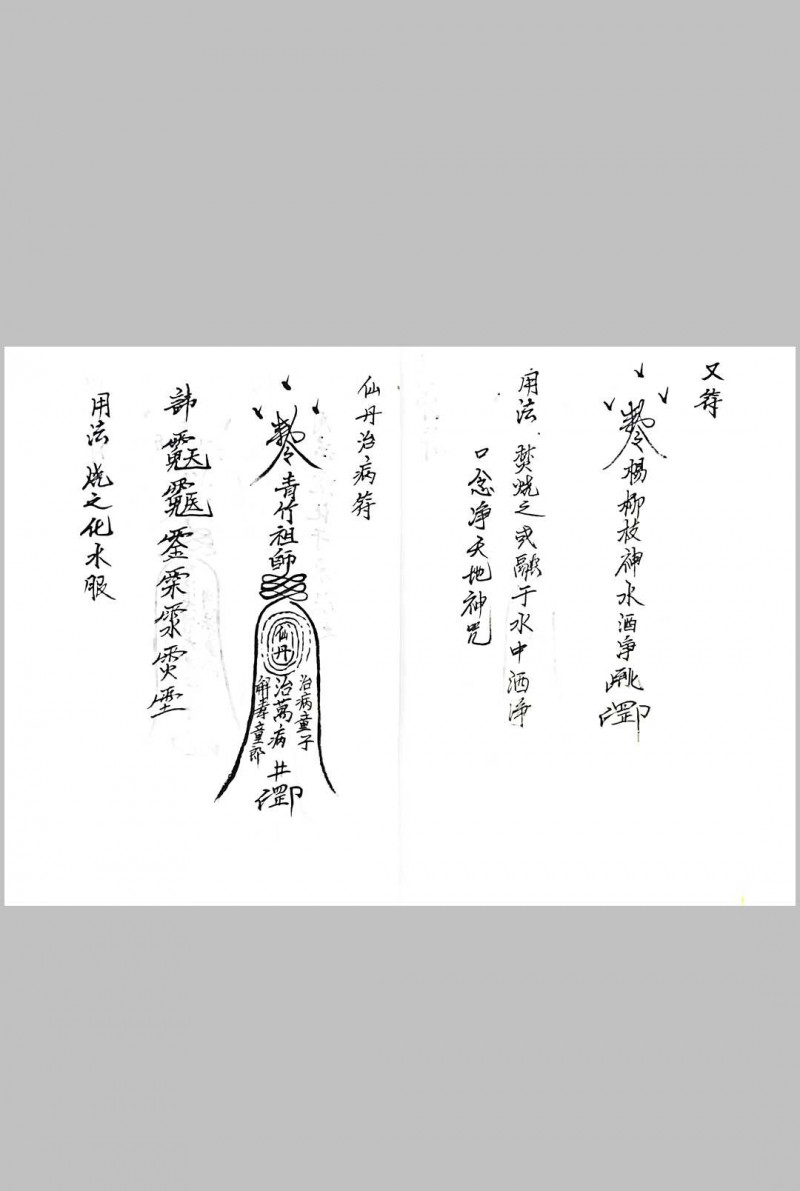 又符
敕令楊柳枝神水洒净
用法 焚烧之或融于水中洒净
口念净天地神咒
仙丹治病符
敕令青竹祖師
仙丹
治病童子
治萬病井
解毒童郎
諱
用法 烧之化水服